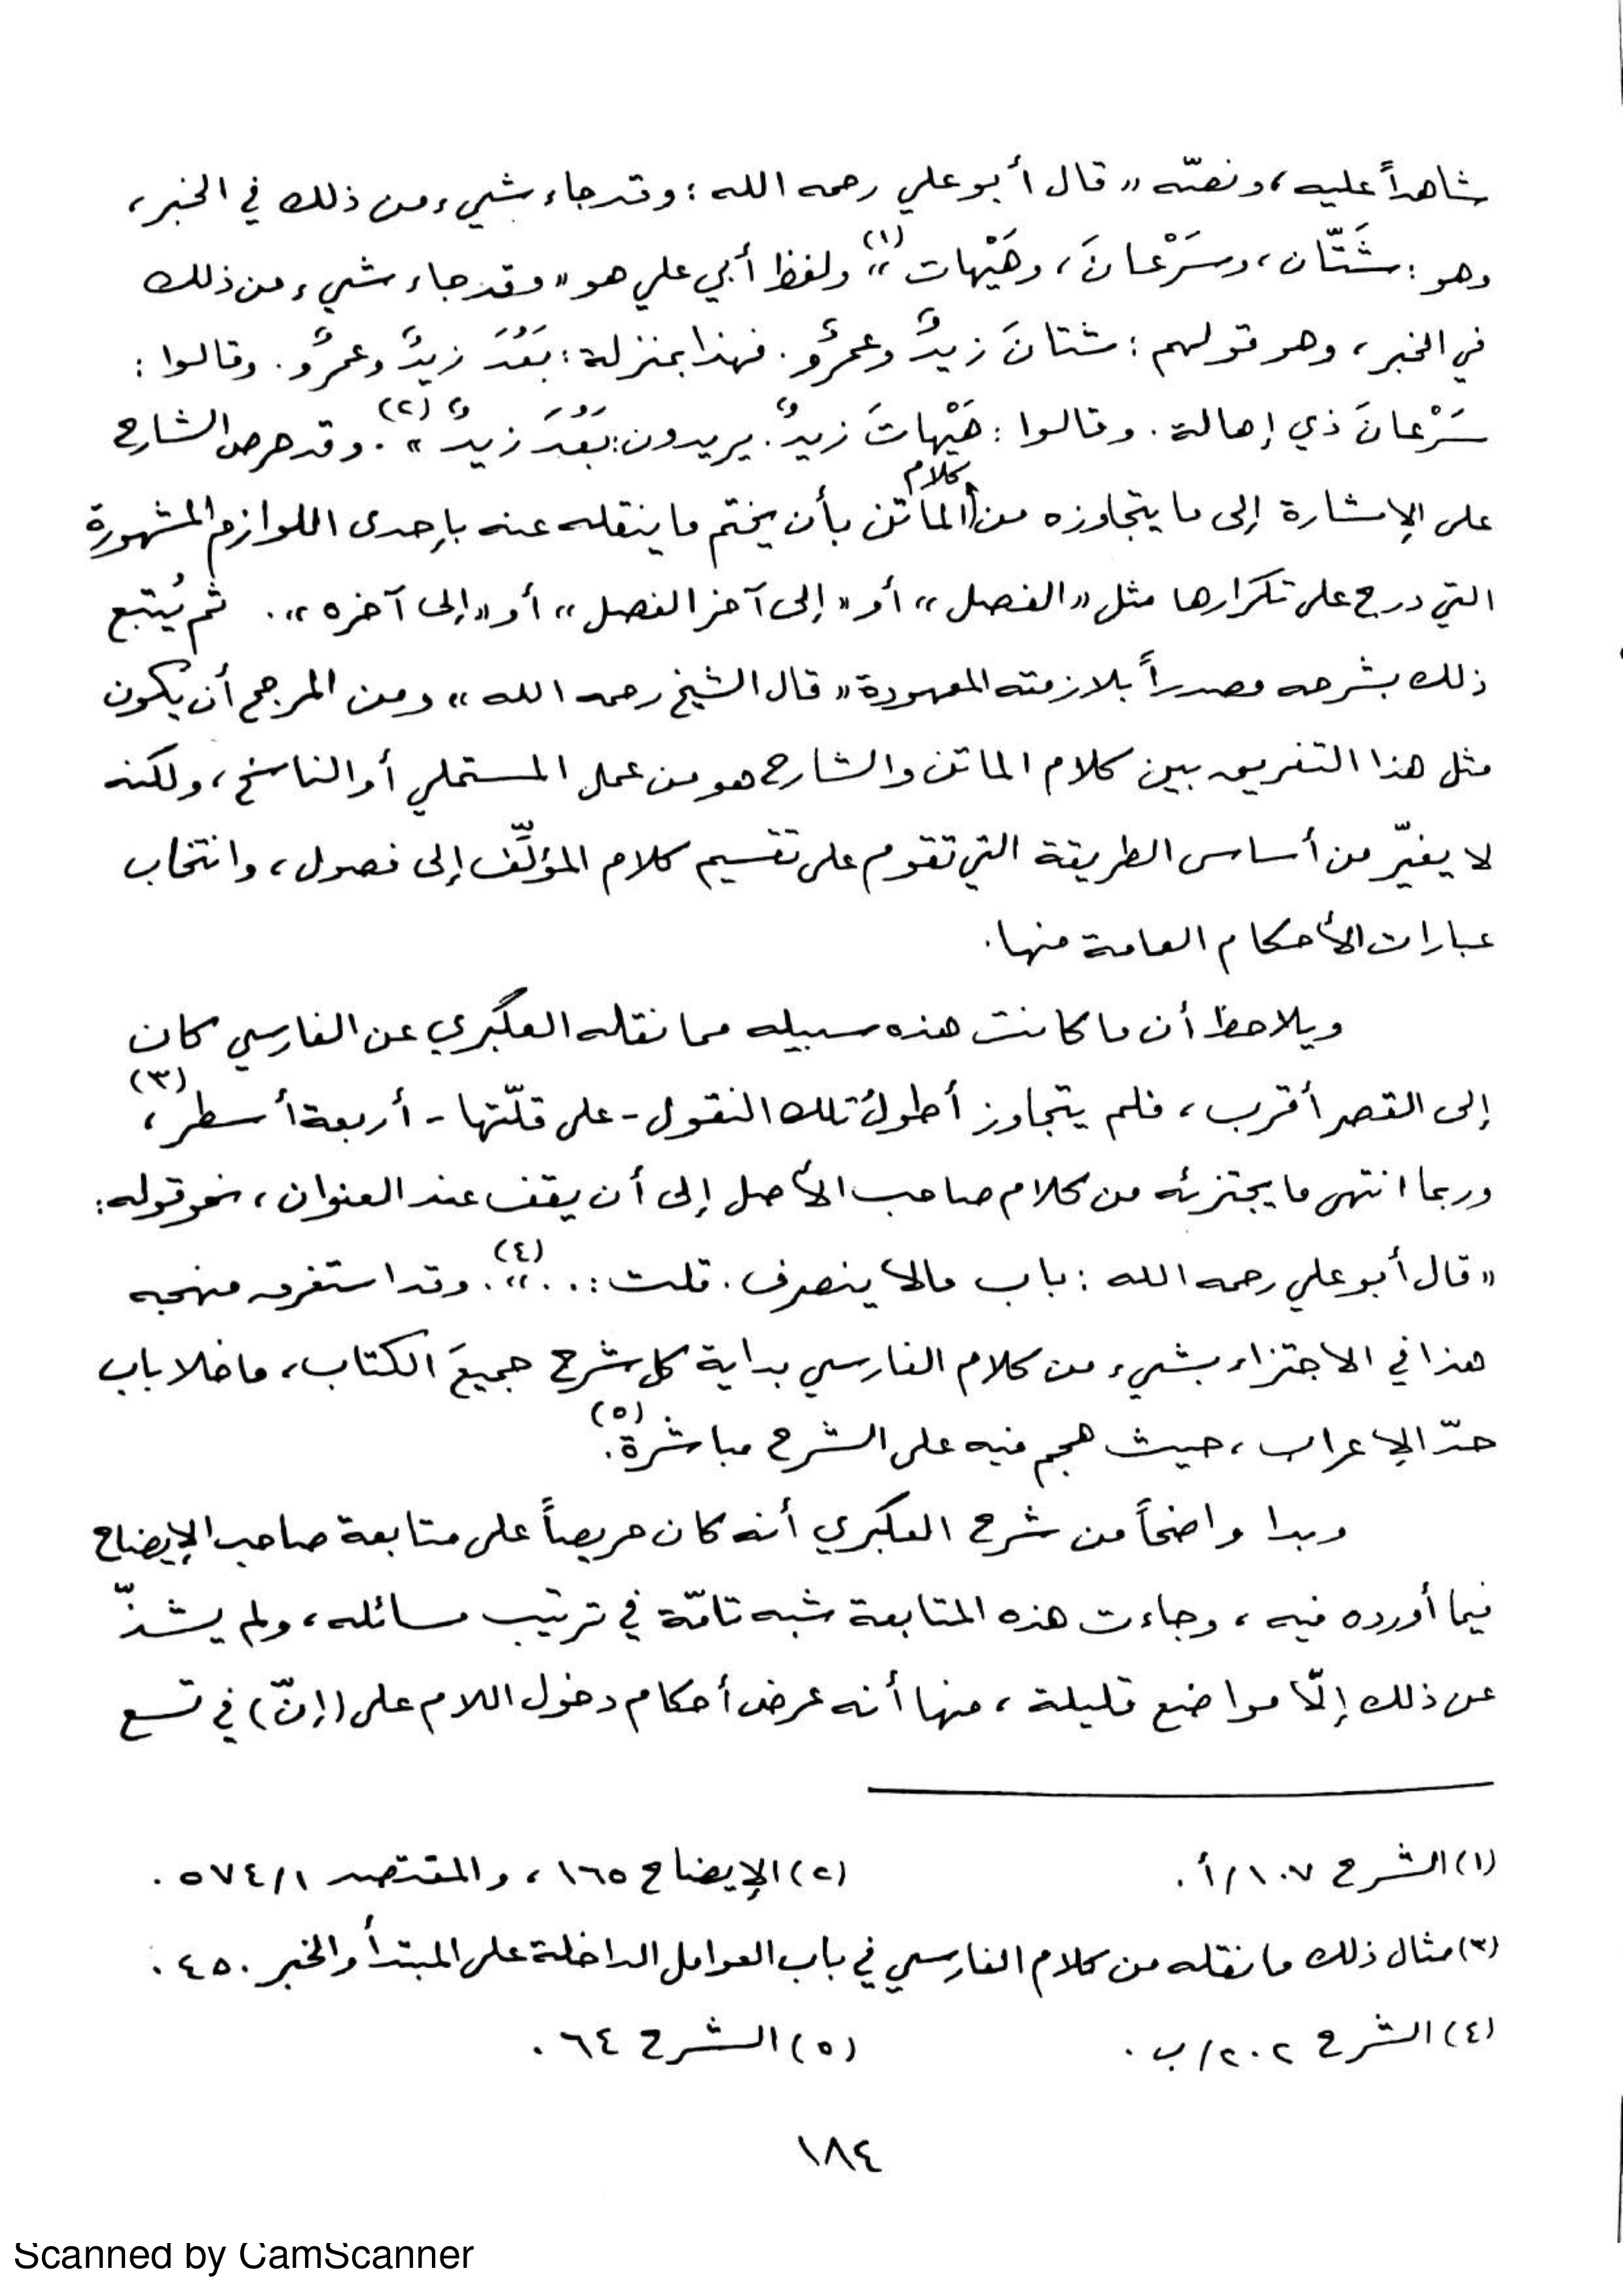 شاهداً عليه، ونصّه «قال أبو علي رحمه الله: وقد جاء شيء من ذلك في الخبر،
وهو: شَتّان، وسَرْعانَ، وهَيْهات»(١) ولفظ أبي علي هو «وقد جاء شيء من ذلك
في الخبر، وهو قولهم: شتانَ زيدٌ وعمرٌو. فهذا بمنزلة: بَعُدَ زيدٌ وعمرٌو. وقالوا:
سَرْعانَ ذي إهالة. وقالوا: هَيْهاتَ زيدٌ. يريدون: بَعُدَ زيدٌ»(٢). وقد حرص الشارح
على الإشارة إلى ما يتجاوزه من كلام الماتن بأن يختم ما ينقله عنه بإحدى اللوازم المشهورة
التي درج على تكرارها مثل «الفصل» أو «إلى آخر الفصل» أو «إلى آخره». ثم يُتبع
ذلك بشرحه مصدراً بلازمته المعهودة «قال الشيخ رحمه الله» ومن المرجح أن يكون
مثل هذا التفريق بين كلام الماتن والشارح هو من عمل المستملي أو الناسخ، ولكنه
لا يغيّر من أساس الطريقة التي تقوم على تقسيم كلام المؤلِّف إلى فصول، وانتخاب
عبارات الأحكام العامة منها.
ويلاحظ أن ما كانت هذه سبيله مما نقله العكبري عن الفارسي كان
إلى القصر أقرب، فلم يتجاوز أطولُ تلك النقول - على قلّتها - أربعة أسطر(٣)،
وربما انتهى ما يجتزئه من كلام صاحب الأصل إلى أن يقف عند العنوان، نحو قوله:
«قال أبو علي رحمه الله: باب مالا ينصرف. قلت:..»(٤). وقد استغرق منهجه
هذا في الاجتزاء بشيء من كلام الفارسي بداية كل شرح جميعَ الكتاب، ما خلا باب
حدّ الإعراب، حيث هجم فيه على الشرح مباشرة(٥).
وبدا واضحاً من شرح العكبري أنه كان حريصاً على متابعة صاحب الإيضاح
فيما أورده فيه، وجاءت هذه المتابعة شبه تامّة في ترتيب مسائله، ولم يشذّ
عن ذلك إلّا مواضع قليلة، منها أنه عرض أحكام دخول اللام على (إنّ) في تسع
(١) الشرح ١٠٧/أ. (٢) الإيضاح ١٦٥، والمقتصد ٥٧٤/١.
(٣) مثال ذلك ما نقله من كلام الفارسي في باب العوامل الداخلة على المبتدأ والخبر ٤٥٠.
(٤) الشرح ٢٠٢/ب. (٥) الشرح ٦٤.
١٨٤
Scanned by CamScanner